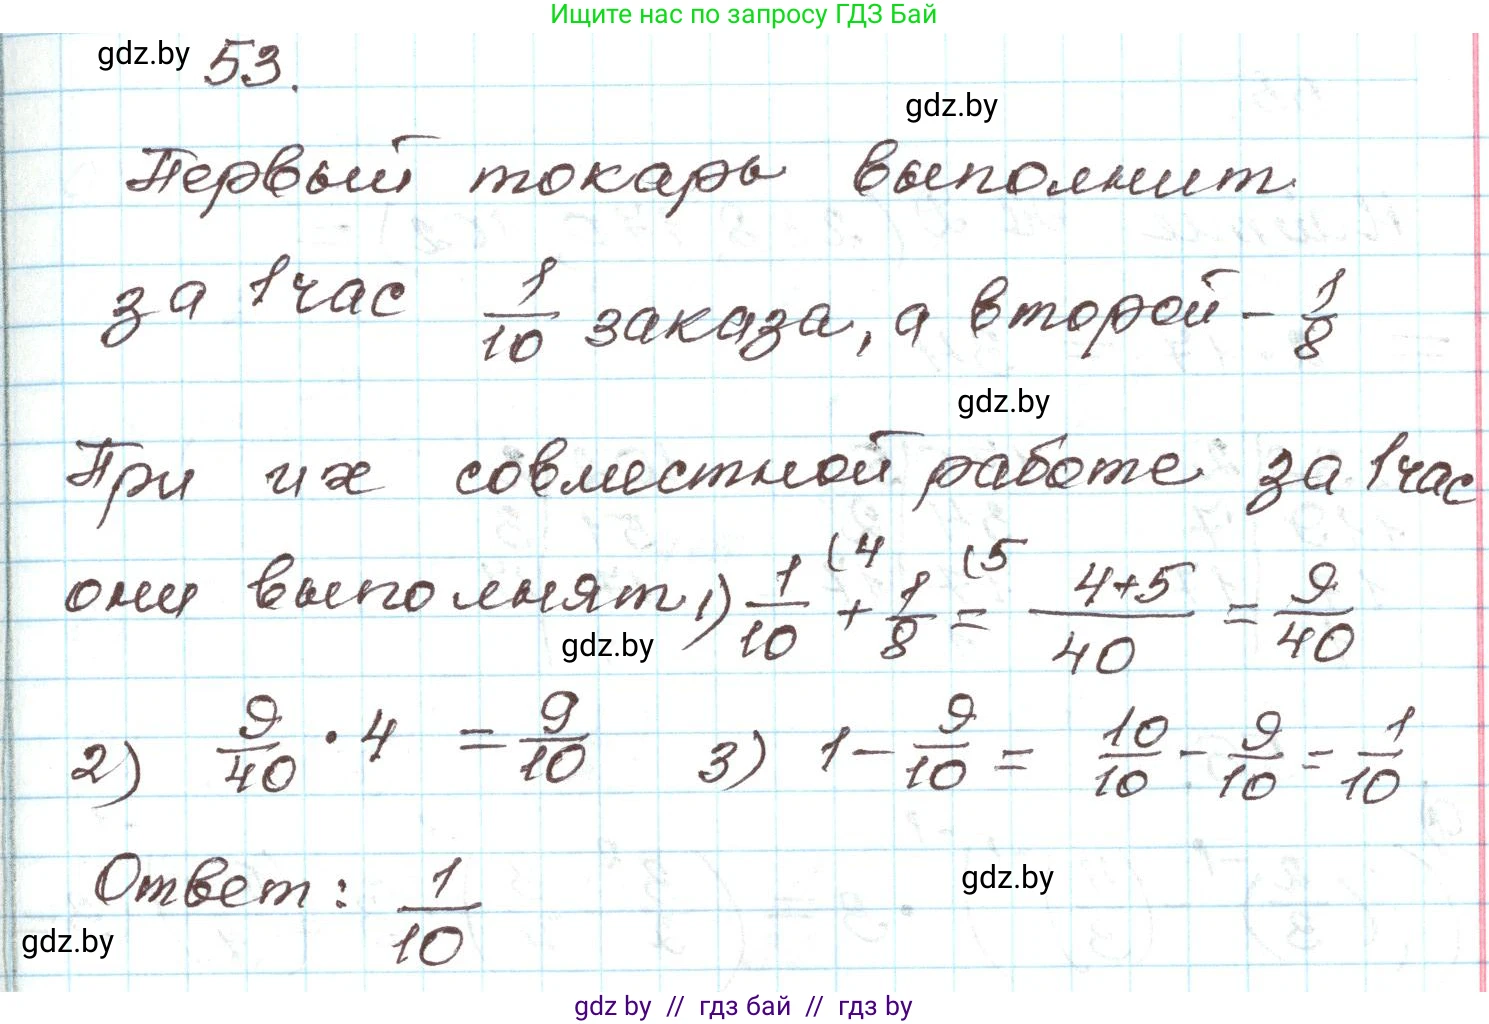 Ищите нас по запросу ГДЗ Бай
gdz.by 53.
gdz.by
Первый токарь выполнит
за 1 час 1/10 заказа, а второй - 1/8
gdz.by
При их совместной работе за 1 час
они выполнят 1) 1/10 (4 + 1/8 (5 = 4+5/40 = 9/40
gdz.by
2) 9/40 · 4 = 9/10 3) 1 - 9/10 = 10/10 - 9/10 = 1/10
Ответ: 1/10
gdz.by
gdz.by
gdz by // гдз бай // гдз by